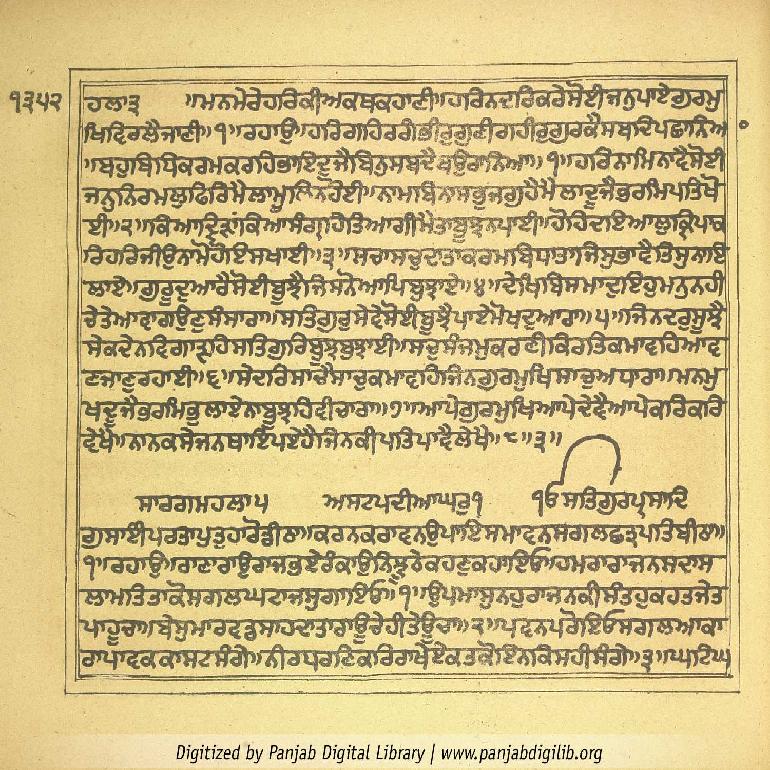 ੧੩੫੨
ਹਲਾ੩ ॥ਮਨਮੇਰੇਹਰਿਕੀਅਕਥਕਹਾਣੀ॥ਹਰਿਨਦਰਿਕਰੇਸੋਈਜਨੁਪਾਏਗੁਰਮੁ
ਖਿਵਿਰਲੈਜਾਣੀ॥੧॥ਰਹਾਉ॥ਹਰਿਗਹਿਰਗੰਭੀਰੁਗੁਣੀਗਹੀਰੁਗੁਰਕੈਸਬਦਿਪਛਾਨਿਆ
॥ਬਹੁਬਿਧਿਕਰਮਕਰਹਿਭਾਇਦੂਜੈਬਿਨੁਸਬਦੈਬਉਰਾਨਿਆ॥੧॥ਹਰਿਨਾਮਿਨਾਵੈਸੋਈ
ਜਨੁਨਿਰਮਲੁਫਿਰਿਮੈਲਾਮੂਲਿਨਹੋਈ॥ਨਾਮਬਿਨਾਸਭੁਜਗੁਹੈਮੈਲਾਦੂਜੈਭਰਮਿਪਤਿਖੋ
ਈ॥੨॥ਕਿਆਦ੍ਰਿੜਾਂਕਿਆਸੰਗ੍ਰਹਿਤਿਆਗੀਮੈਤਾਬੂਝਨਪਾਈ॥ਹੋਹਿਦਇਆਲੁਕ੍ਰਿਪਾਕ
ਰਿਹਰਿਜੀਉਨਾਮੋਹੋਇਸਖਾਈ॥੩॥ਸਚਾਸਚੁਦਾਤਾਕਰਮਬਿਧਾਤਾਜਿਸੁਭਾਵੈਤਿਸੁਨਾਇ
ਲਾਏ॥ਗੁਰੂਦੁਆਰੈਸੋਈਬੂਝੈਜਿਸਨੋਆਪਿਬੁਝਾਏ॥੪॥ਦੇਖਿਬਿਸਮਾਦੁਇਹੁਮਨੁਨਹੀ
ਚੇਤੇਆਵਾਗਉਣੁਸੰਸਾਰਾ॥ਸਤਿਗੁਰੁਸੇਵੇਸੋਈਬੂਝੈਪਾਏਮੋਖਦੁਆਰਾ॥੫॥ਜਿਨਦਰੁਸੂਝੈ
ਸੇਕਦੇਨਵਿਗਾੜਹਿਸਤਿਗੁਰਿਬੂਝਬੁਝਾਈ॥ਸਚੁਸੰਜਮੁਕਰਣੀਕਿਰਤਿਕਮਾਵਹਿਆਵ
ਣਜਾਣੁਰਹਾਈ॥੬॥ਸੇਦਰਿਸਾਚੈਸਾਚੁਕਮਾਵਹਿਜਿਨਗੁਰਮੁਖਿਸਾਚੁਅਧਾਰਾ॥ਮਨਮੁ
ਖਦੂਜੈਭਰਮਿਭੁਲਾਏਨਾਬੂਝਹਿਵੀਚਾਰਾ॥੭॥ਆਪੇਗੁਰਮੁਖਿਆਪੇਦੇਵੈਆਪੇਕਰਿਕਰਿ
ਵੇਖੈ॥ਨਾਨਕਸੇਜਨਥਾਇਪਏਹੈਜਿਨਕੀਪਤਿਪਾਵੈਲੇਖੈ॥੮॥੩॥
ਸਾਰਗਮਹਲਾ੫ ਅਸਟਪਦੀਆਘਰੁ੧ ੧ੴਸਤਿਗੁਰਪ੍ਰਸਾਦਿ
ਗੁਸਾਈਪਰਤਾਪੁਤੁਹਾਰੋਡੀਠਾ॥ਕਰਨਕਰਾਵਨਉਪਾਇਸਮਾਵਨਸਗਲਛਤ੍ਰਪਤਿਬੀਠਾ॥
੧॥ਰਹਾਉ॥ਰਾਣਾਰਾਉਰਾਜਭਏਰੰਕਾਉਨਿਝੂਠੇਕਹਣੁਕਹਾਇਓ॥ਹਮਰਾਰਾਜਨਸਦਾਸ
ਲਾਮਤਿਤਾਕੋਸਗਲਘਟਾਜਸੁਗਾਇਓ॥੧॥ਉਪਮਾਸੁਨਹੁਰਾਜਨਕੀਸੰਤਹੁਕਹਤਜੇਤ
ਪਾਹੂਚਾ॥ਬੇਸੁਮਾਰਵਡਸਾਹਦਾਤਾਰਾਊਚੇਹੀਤੇਊਚਾ॥੨॥ਪਵਨਪਰੋਇਓਸਗਲਅਕਾ
ਰਾਪਾਵਕਕਾਸਟਸੰਗੇ॥ਨੀਰਧਰਣਿਕਰਿਰਾਖੇਏਕਤਕੋਇਨਕਿਸਹੀਸੰਗੇ॥੩॥ਘਟਿਘ
Digitized by Panjab Digital Library | www.panjabdigilib.org